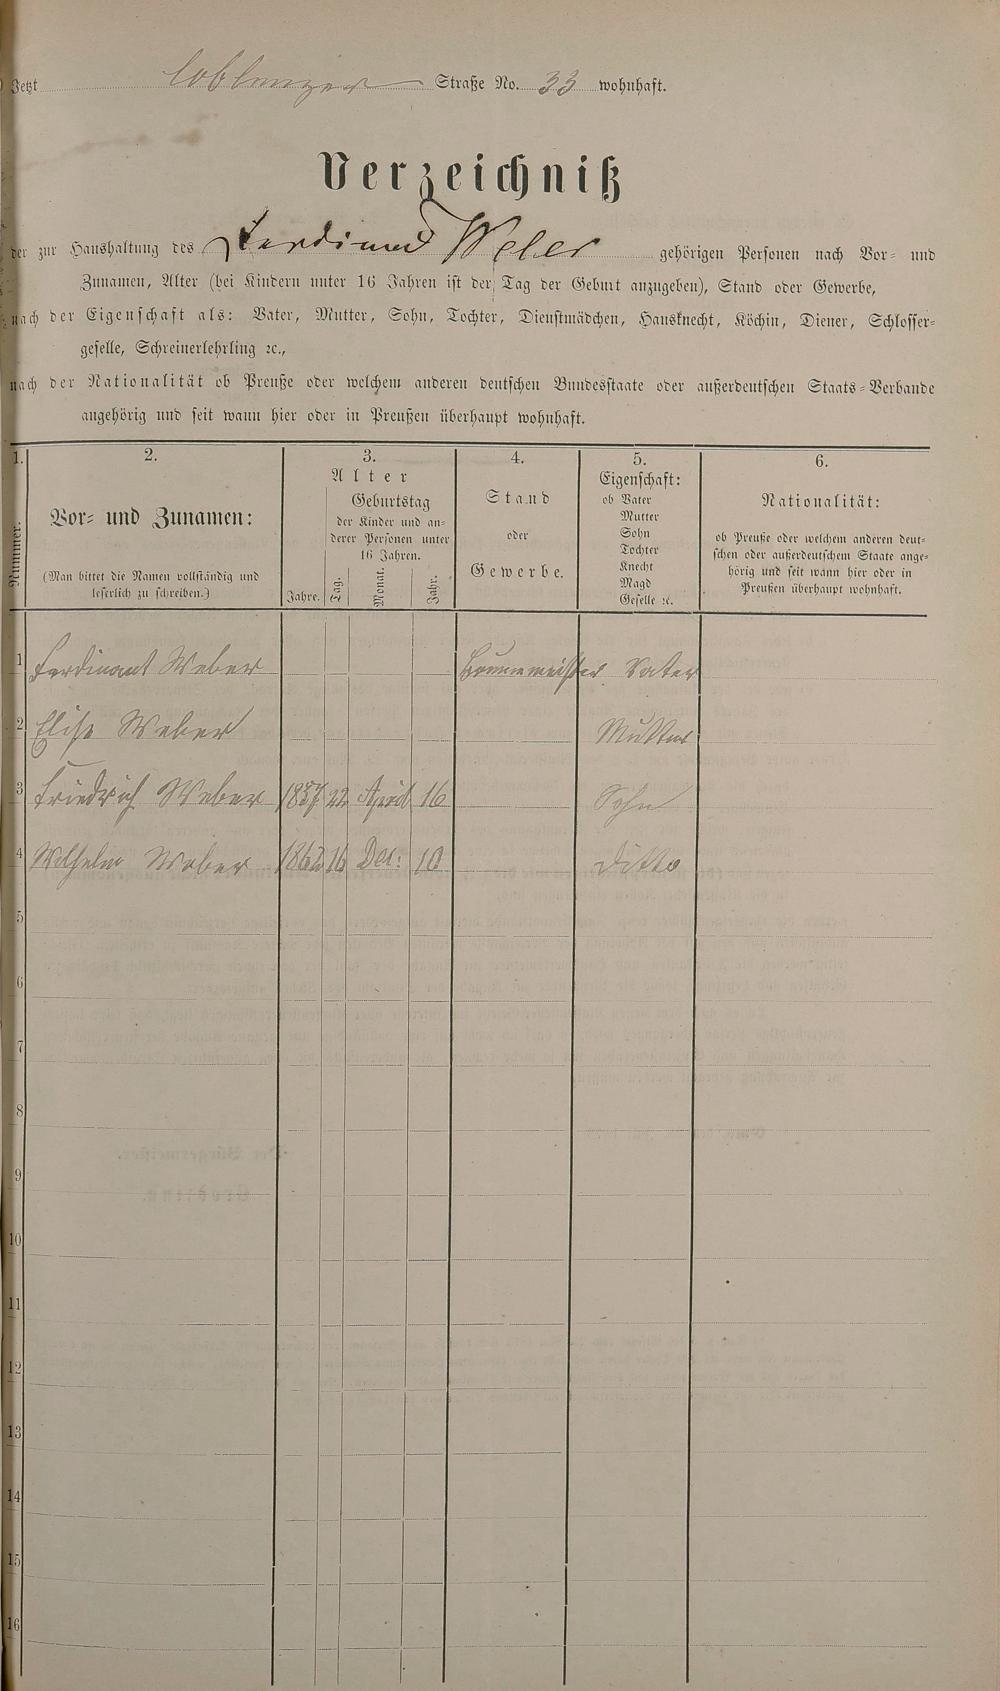 Jetzt Coblenzer Straße No. 33 wohnhaft.
Verzeichniß
der zur Haushaltung des Ferdinand Weber gehörigen Personen nach Vor- und
Zunamen, Alter (bei Kindern unter 16 Jahren ist der Tag der Geburt anzugeben), Stand oder Gewerbe,
nach der Eigenschaft als: Vater, Mutter, Sohn, Tochter, Dienstmädchen, Hausknecht, Köchin, Diener, Schlosser-
geselle, Schreinerlehrling ꝛc.,
nach der Nationalität ob Preuße oder welchem anderen deutschen Bundesstaate oder außerdeutschen Staats-Verbande
angehörig und seit wann hier oder in Preußen überhaupt wohnhaft.
1. 2. 3. 4. 5. 6.
Nummer.
Vor- und Zunamen:
(Man bittet die Namen vollständig und
leserlich zu schreiben.)
Alter
Geburtstag
der Kinder und an-
derer Personen unter
16 Jahren.
Jahre. Tag. Monat. Jahr.
Stand
oder
Gewerbe.
Eigenschaft:
ob Vater
Mutter
Sohn
Tochter
Knecht
Magd
Geselle ꝛc.
Nationalität:
ob Preuße oder welchem anderen deut-
schen oder außerdeutschem Staate ange-
hörig und seit wann hier oder in
Preußen überhaupt wohnhaft.
1 Ferdinant Weber Vater
2 Elise Weber Mutter
3 Friedrich Weber 1857 22 April 16 Sohn
4 Wilhelm Weber 1862 16 Dec: 10 Ditto
5
6
7
8
9
10
11
12
13
14
15
16